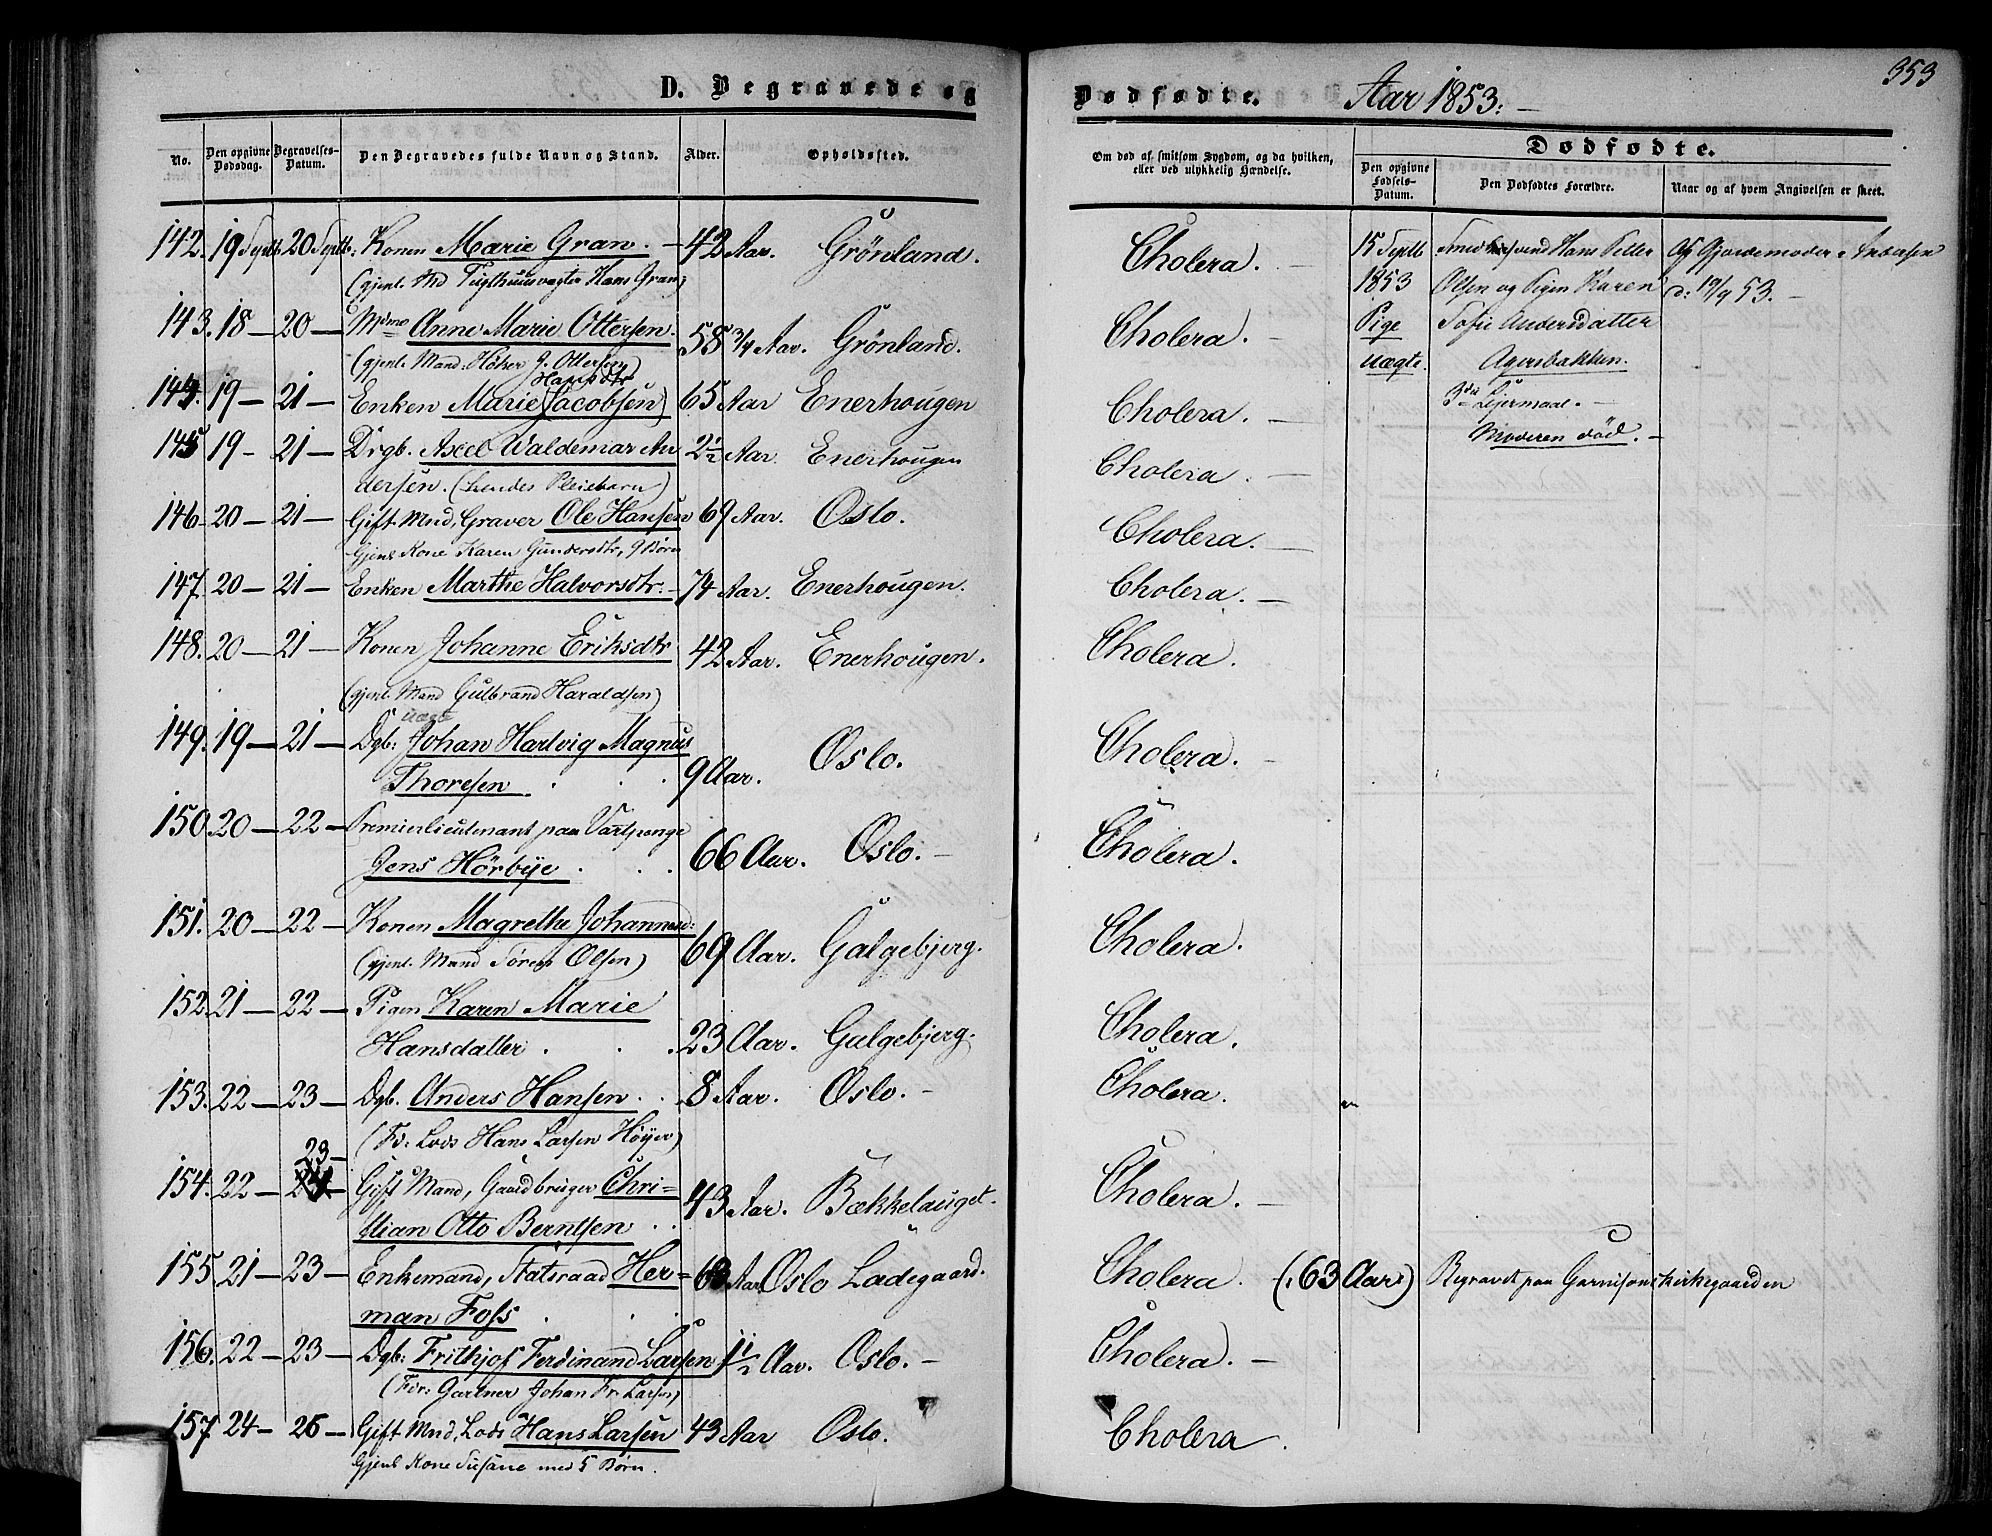 353
D. Begravede og Dødfødte. Aar 1853.
No. Den opgivne Dødsdag. Begravelses-Datum. Den Begravedes fulde Navn og Stand. Alder. Opholdssted. Om død af smitsom Sygdom, og da hvilken, eller ved ulykkelig Hændelse.
Dødfødte.
Den opgivne Fødsels-Datum. Den Dødfødtes Forældre. Naar og af hvem Angivelsen er skeet.
142. 19 Septb. 20 Septb: Konen Marie Gran. - 42 Aar. Grönland. Cholera. -
(gjenl. Md Tugthuusvagter Hans Gran)
143. 18 - 20 - Mdme Anne Marie Ottersen. 58 3/4 Aar. Grönland. Cholera. -
(gjenl. Mand: Höker J. Ottersen)
Hansdtr
144. 19 - 21 - Enken Marie (Jacobsen) 65 Aar Enerhougen Cholera. -
145 19 - 21 - Drgb. Axel Waldemar An 2 1/2 Aar. Enerhougen Cholera. -
dersen. (Lundes Pleiebarn)
146. 20 - 21 - Gift Mnd, Graver Ole Hansen 69 Aar. Oslo. Cholera. -
Gjenl Kone Karen Gundersdtr, 9 Börn
147. 20 - 21 - Enken Marthe Halvorsdtr. - 74 Aar. Enerhougen. Cholera. -
148. 20 - 21 - Konen Johanne Eriksdtr 42 Aar. Enerhougen. Cholera.
(gjenl. Mand Gulbrand Haraldsen)
uægte
149. 19 - 21 - Dgb: Johan Hartvig Magnus
Thoresen . . . 9 Aar. Oslo. Cholera. -
150. 20 - 22 - Premierlieutenant paa Vartpenge
Jens Hörbye . . . 66 Aar. Oslo. - Cholera.
151. 20 - 22 - Konen Magrethe Johannesd:
(gjenl. Mand Sören Olsen) 69 Aar. Galgebjerg. Cholera.
152. 21 - 22 - Pigen Karen Marie
Hansdatter . . . 23 Aar. Galgebjerg. Cholera.
153. 22 - 23 - Dgb. Anders Hansen . . 8 Aar. Oslo. - Cholera.
(Fr: Lods Hans Larsen Höyer)
23 -
154. 22 - Gift Mand, Gaardbruger Chri=
stian Otto Berntsen . . 43 Aar. Bækkelauget. Cholera. -
155. 21 - 23 - Enkemand, Statsraad Her= 63 Aar Oslo Ladegaard. Cholera. (: 63 Aar :) Begravet paa Garnisonskirkegaarden
man Foss . . .
156. 22 - 23 - Dgb: Frithjof Ferdinand Larsen 1 1/2 Aar. Oslo. - Cholera. -
(Fdr: Gartner Johan Fr. Larsen)
157 24 - 26 - Gift Mnd, Lods Hans Larsen 43 Aar Oslo. Cholera.
Gjenl Kone Susane med 5 Börn.
15 Septb Smedsvend Hans Petter Af Gjordemoder Andersen
1853 Olsen og Pigen Karen d: 19/9 53. -
Pige Sofie Andersdatter
uægte. Agersbakken.
3die Leiermaal. -
Moderen död. -